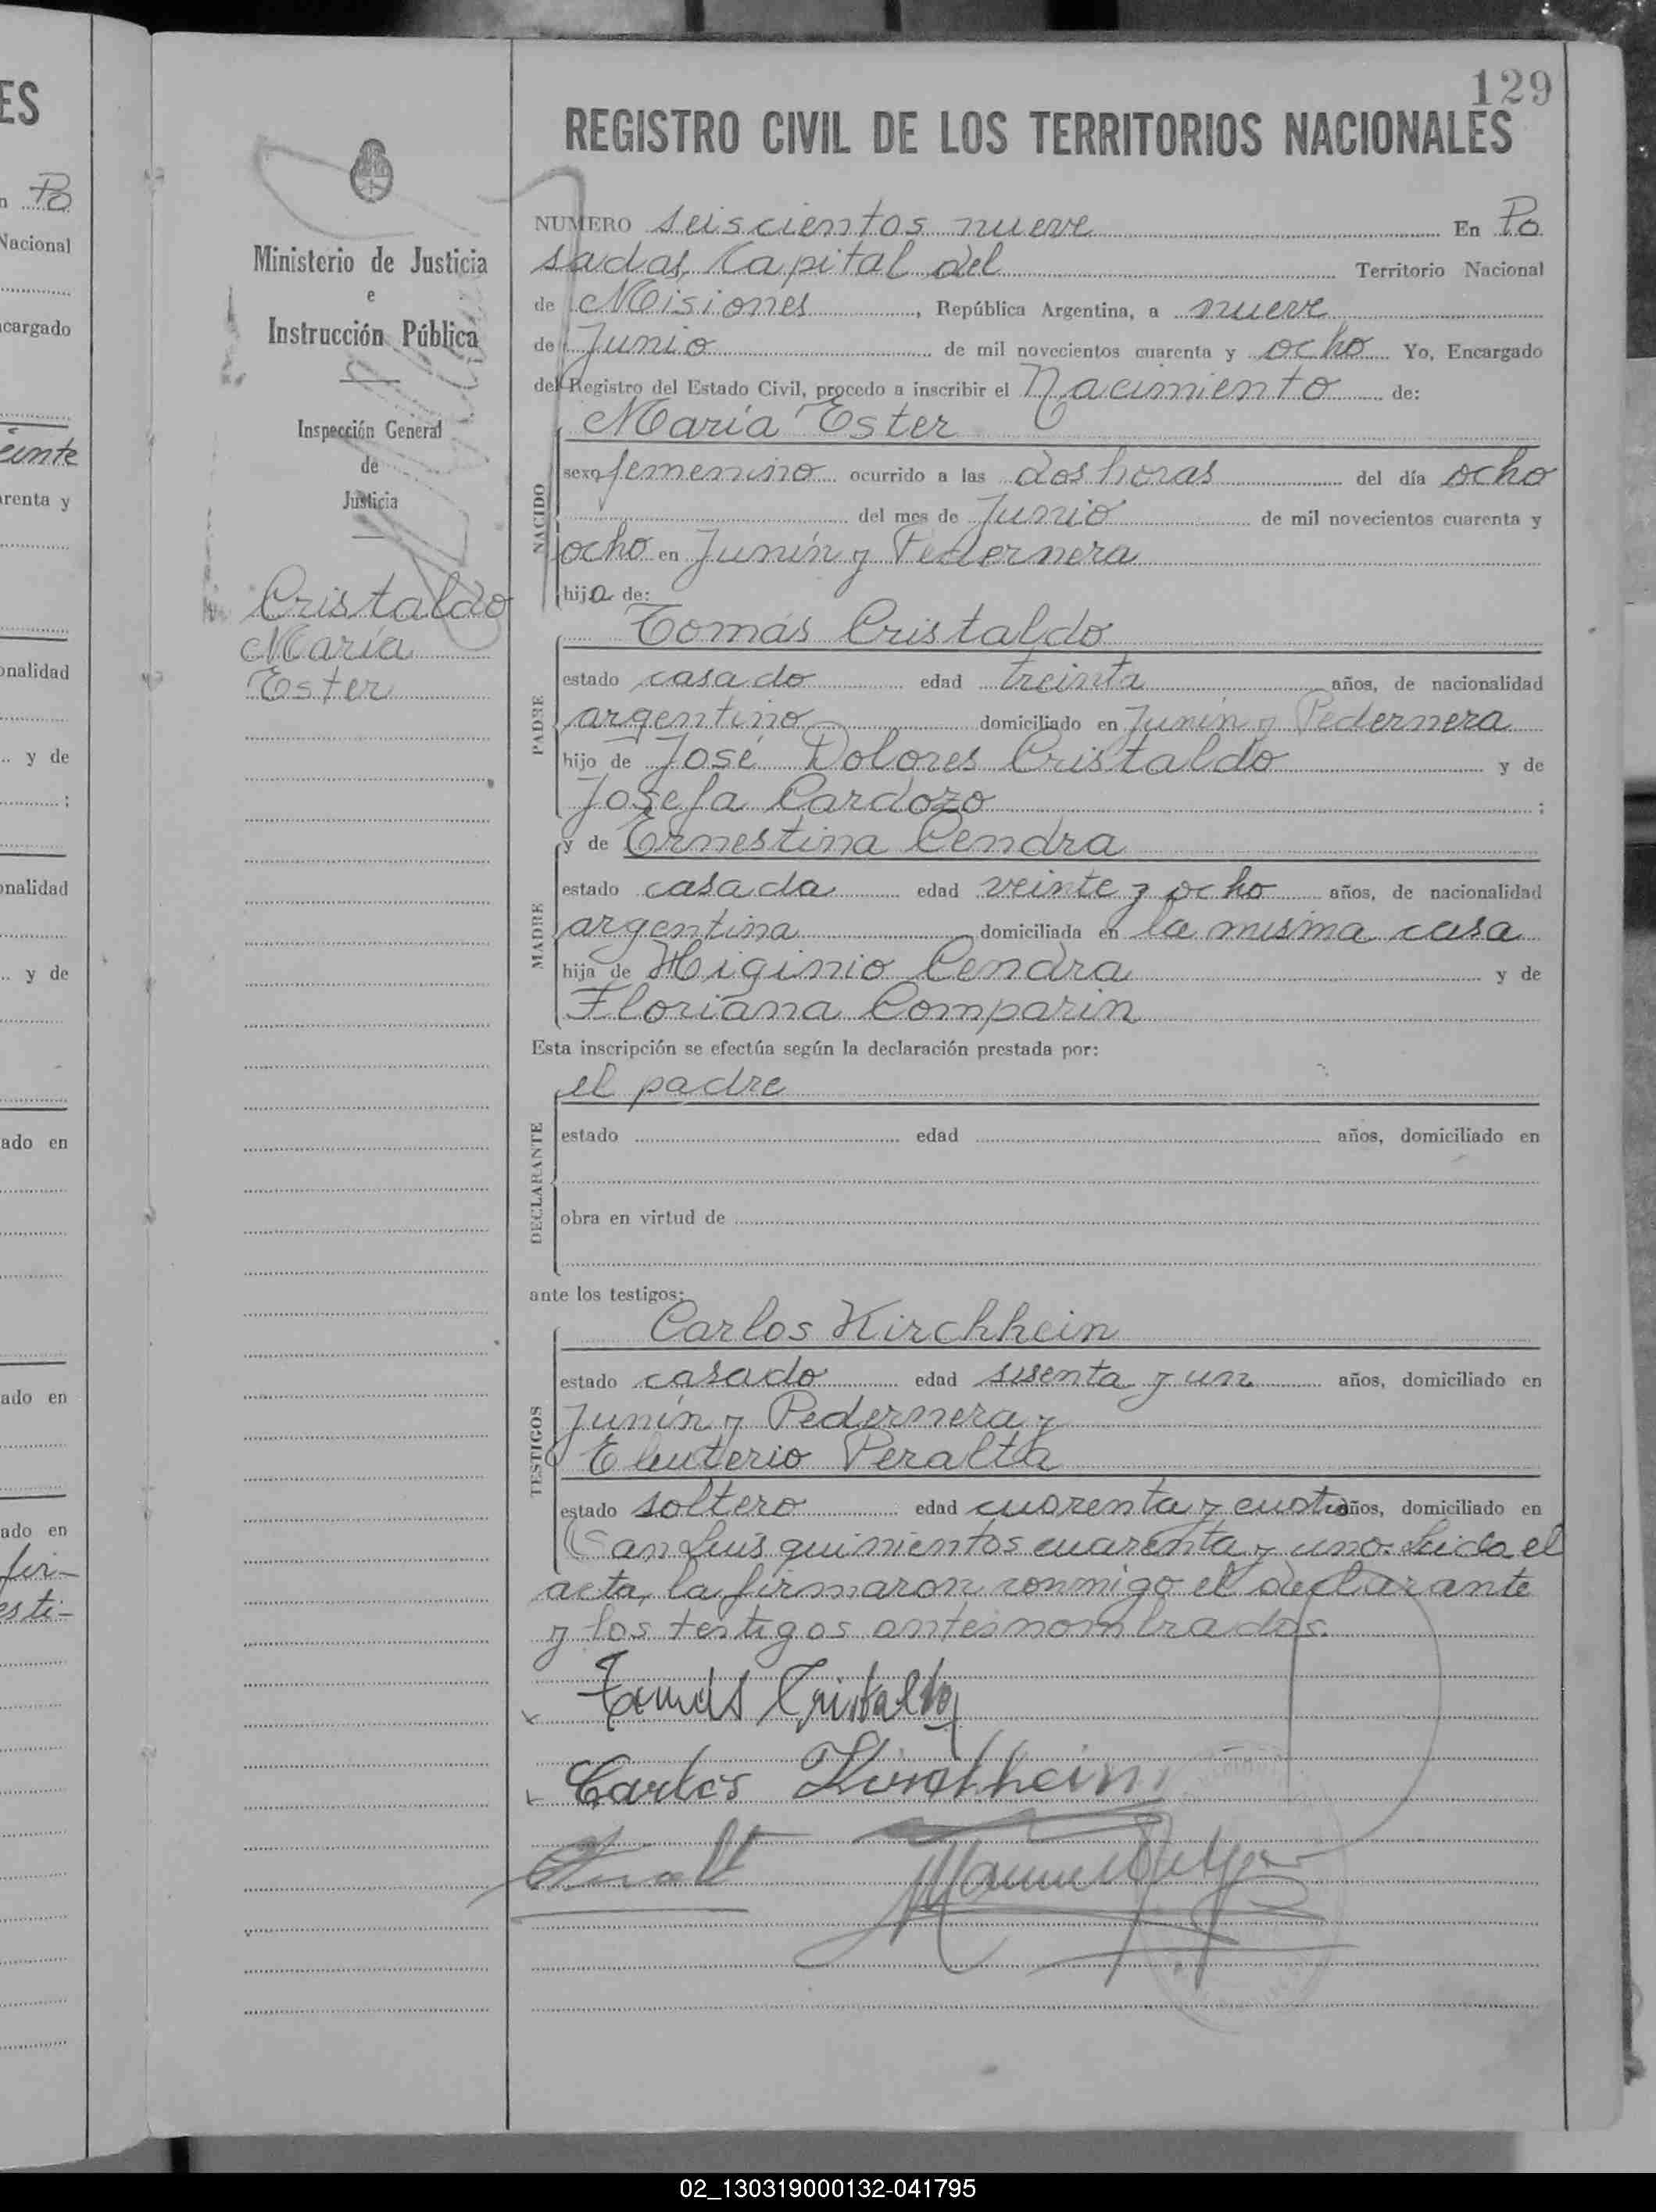 129
REGISTRO CIVIL DE LOS TERRITORIOS NACIONALES
Ministerio de Justicia
e
Instrucción Pública
Inspección General
de
Justicia
Cristaldo
María
Ester
NUMERO seiscientos nueve En Po
sadas, Capital del Territorio Nacional
de Misiones, República Argentina, a nueve
de Junio de mil novecientos cuarenta y ocho Yo, Encargado
del Registro del Estado Civil, procedo a inscribir el Nacimiento de:
NACIDO
María Ester
sexo femenino ocurrido a las dos horas del día ocho
del mes de Junio de mil novecientos cuarenta y
ocho en Junín y Pedernera
hija de:
PADRE
Tomás Cristaldo
estado casado edad treinta años, de nacionalidad
argentino domiciliado en Junín y Pedernera
hijo de José Dolores Cristaldo y de
Josefa Cardozo ;
MADRE
y de Ernestina Cendra
estado casada edad veinte y ocho años, de nacionalidad
argentina domiciliada en la misma casa
hija de Higinio Cendra y de
Floriana Comparin
Esta inscripción se efectúa según la declaración prestada por:
DECLARANTE
el padre
estado edad años, domiciliado en
obra en virtud de
ante los testigos:
TESTIGOS
Carlos Kirchhein
estado casado edad sesenta y un años, domiciliado en
Junín y Pedernera y
Eleuterio Peralta
estado soltero edad cuarenta y cuatro años, domiciliado en
San Luis quinientos cuarenta y uno. Leida el
acta, la firmaron conmigo el declarante
y los testigos antesnombrados.
Tomás Cristaldo
Carlos Kirchhein
ES
n Po
Nacional
ncargado
einte
renta y
onalidad
y de
;
onalidad
y de
ado en
ado en
ado en
fir-
esti-
02_130319000132-041795